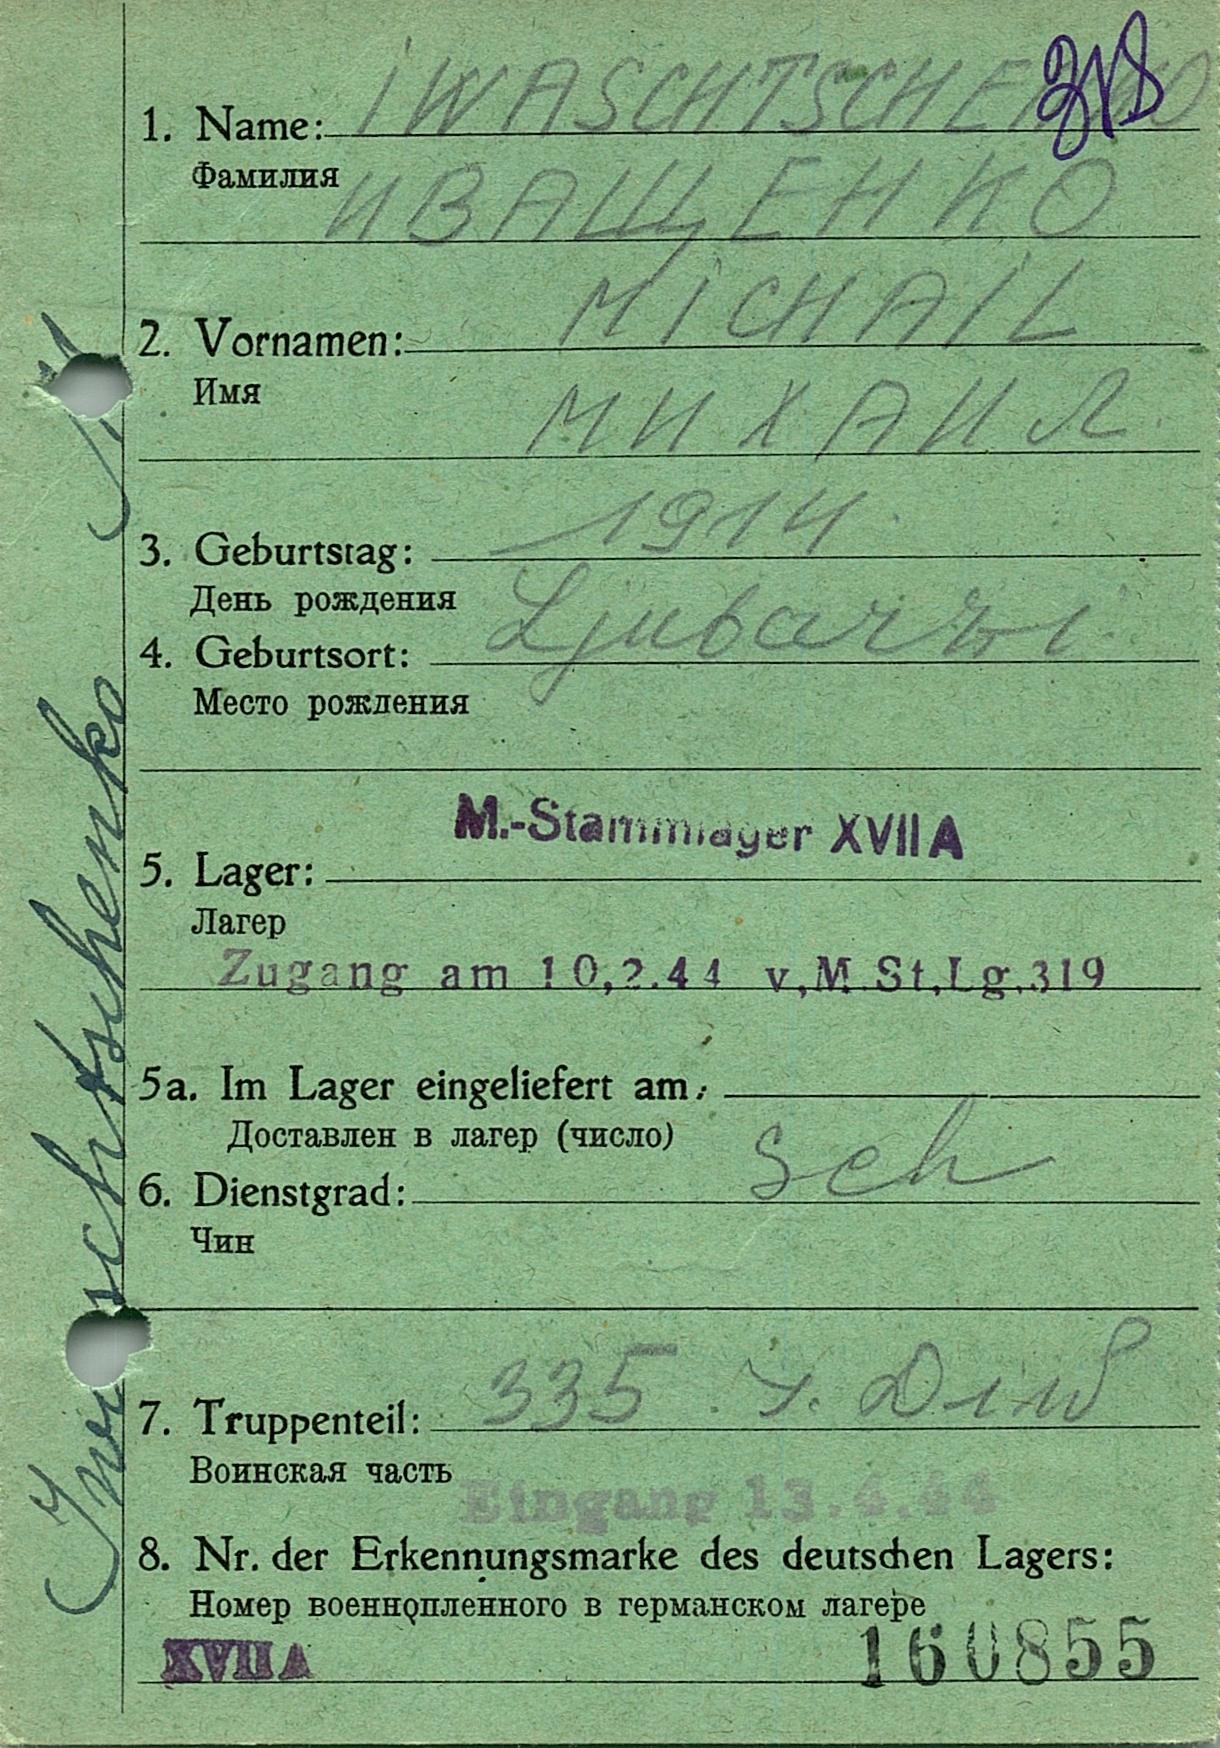 1. Name: IWASCHTSCHENKO
Фамилия ИВАЩЕНКО
2. Vornamen: MICHAIL
Имя МИХАИЛ
3. Geburtstag: 1914
День рождения
4. Geburtsort:
Место рождения
M.-Stammlager XVII A
5. Lager:
Лагер
Zugang am 10,2.44 v,M.St,Lg.319
5a. Im Lager eingeliefert am:
Доставлен в лагер (число)
6. Dienstgrad: Sch
Чин
7. Truppenteil: 335
Воинская часть
Eingang 13.4.44
8. Nr. der Erkennungsmarke des deutschen Lagers:
Номер военнопленного в германском лагере
XVII A 160855
Iwaschtschenko